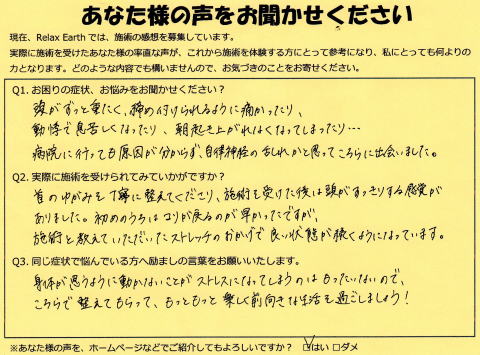 あなた様の声をお聞かせください
現在、Relax Earth では、施術の感想を募集しています。
実際に施術を受けたあなた様の率直な声が、これから施術を体験する方にとって参考になり、私にとっても何よりの
力となります。どのような内容でも構いませんので、お気づきのことをお寄せください。
Q1. お困りの症状、お悩みをお聞かせください？
頭がずっと重たく、締め付けられるように痛かったり、
動悸で息苦しくなったり、朝起き上がれなくなってしまったり…
病院に行っても原因が分からず、自律神経の乱れかと思ってこちらに出会いました。
Q2. 実際に施術を受けられてみていかがですか？
首のゆがみを丁寧に整えてくださり、施術を受けた後は頭がすっきりする感覚が
ありました。初めのうちはコリが戻るのが早かったですが、
施術と教えていただいたストレッチのおかげで良い状態が続くようになっています。
Q3. 同じ症状で悩んでいる方へ励ましの言葉をお願いいたします。
身体が思うように動かないことがストレスになってしまうのはもったいないので、
こちらで整えてもらって、もっともっと楽しく前向きな生活を過ごしましょう！
※あなた様の声を、ホームページなどでご紹介してもよろしいですか？ ☑はい □ダメ